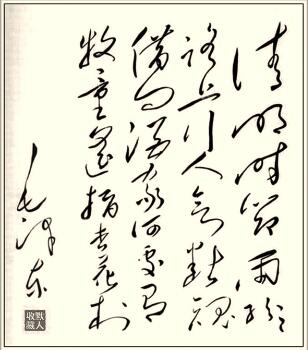 清明时节雨纷纷
路上行人欲断魂
借问酒家何处有
牧童遥指杏花村
毛泽东
人
收藏